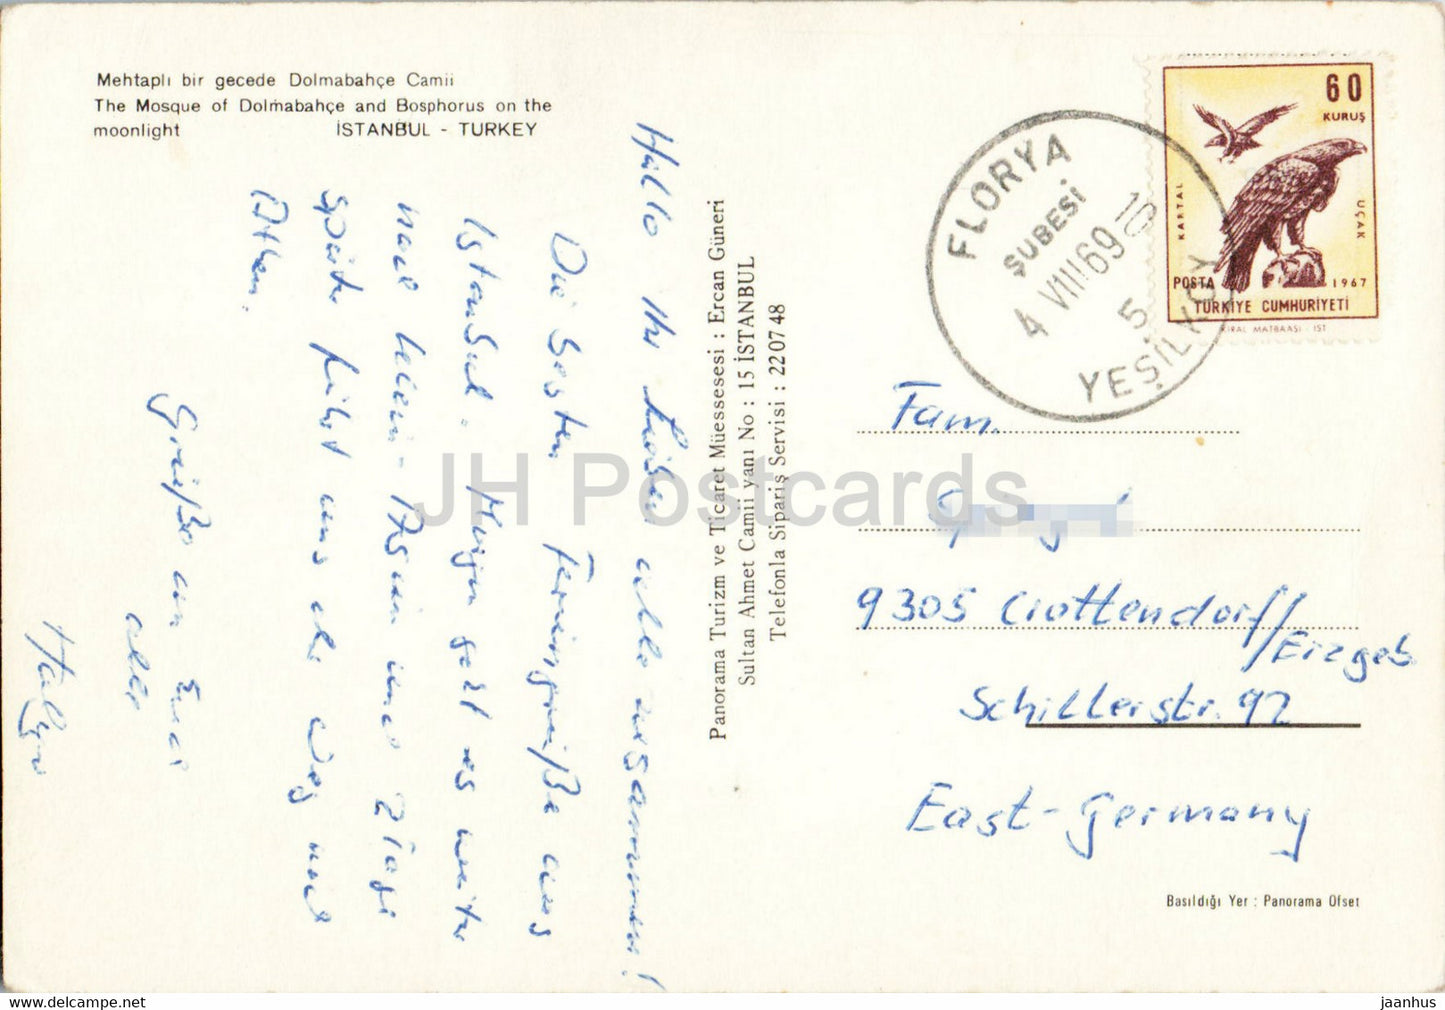 Mehtaplı bir gecede Dolmabahçe Camii
The Mosque of Dolmabahçe and Bosphorus on the
moonlight İSTANBUL - TURKEY
Hallo Ihr Lieben alle zusammen!
Die besten Feriengrüße aus
Istanbul. Morgen geht es weiter
nach Klein-Asien und 2 Tage
später führt uns der Weg nach
Athen.
Grüße an Euch
alle
Panorama Turizm ve Ticaret Müessesesi : Ercan Güneri
Sultan Ahmet Camii yanı No : 15 İSTANBUL
Telefonla Sipariş Servisi : 22 07 48
FLORYA
ŞUBESİ
4 VIII 69 10
5
YEŞİLKÖY
60
KURUŞ
KARTAL
UÇAK
POSTA 1967
TÜRKİYE CUMHURİYETİ
KIRAL MATBAASI - İST
Fam.
9305 Crottendorf/
Erzgeb.
Schillerstr. 92
East-Germany
Basıldığı Yer : Panorama Ofset
JH Postcards
https://jh-net.com
jaanhus